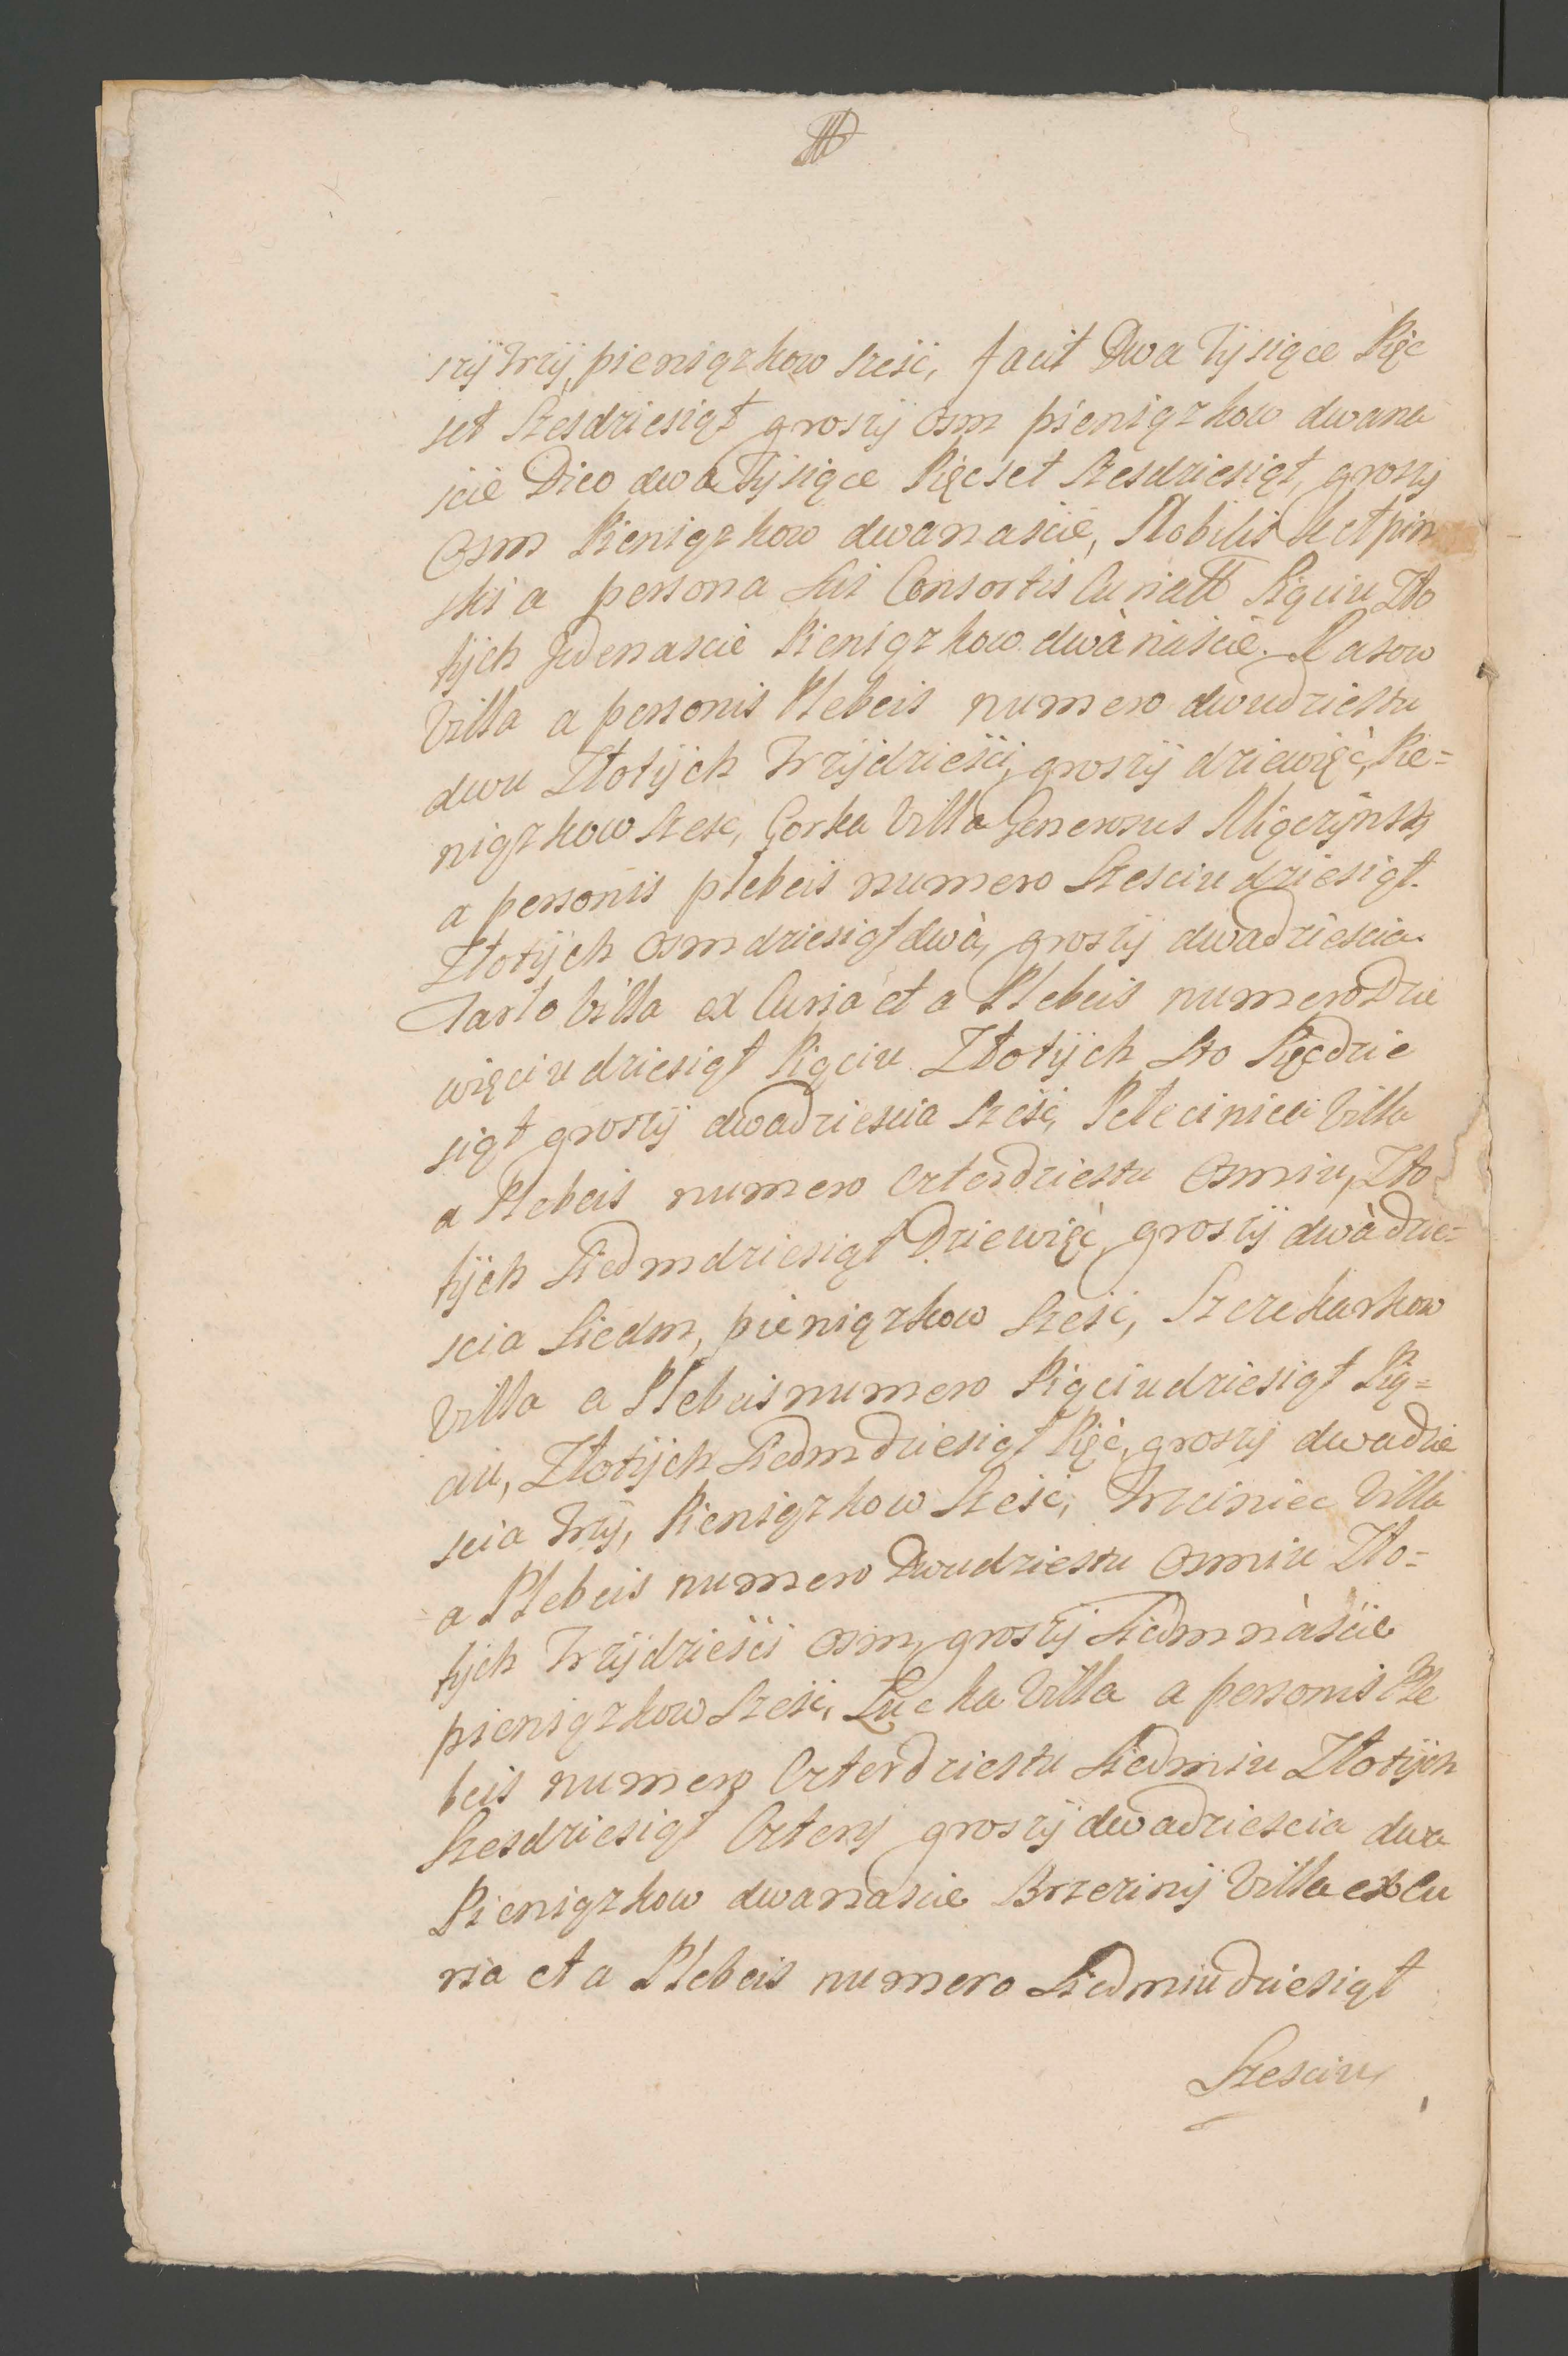 szÿ trzÿ, pieniązkow szesć, facit Dwa Tÿsiące Pięc
set Szesdziesiąt groszÿ osm pieniązkow dwana
scie Dico dwa Tÿsiące Pięcset Szesdziesiąt, groszÿ
Osm Pieniązkow dwanascie, Nobilis Kełpin
ski a persona sui Consortis Curiali Pięciu Zło
tÿch Jedenascie Pieniązkow dwànàscie. Rasow
Villa a personis Plebeis numero dwudziestu
dwu Złotÿch trzÿdziesci, groszÿ dziewięć, Pie=
niązkow Szesc, Gorka Villa Generosus Mięczÿnskÿ
a personis plebeis numero Szesciudziesiąt.
Złotÿch osmdziesiąt dwà, groszÿ dwadziescia.
Jarlo Villa ex Curia et a Plebeis numero Dzie
więciudziesiąt Pięciu Złotÿch Sto Pięcdzie
siąt groszÿ dwadziescia szesć, Pełecinica Villa
a Plebeis numero czterdziestu Osmiu, Zło
tÿch Siedmdziesiąt Dziewięć, groszÿ dwàdzie=
scia Siedm, pieniązkow Szesć, Szczekarkow
Villa a Plebeis numero Pięciudziesiąt Pię=
ciu, Złotÿch Siedmdziesiąt Pięć, groszÿ dwadzie
scia trzÿ, Pieniązkow Szesć, Trzciniec Villa
a Plebeis numero Dwudziestu Osmiu Zło=
tÿch trzÿdziesci Osm, groszÿ Siedmnàscie
pieniązkow Szesć, Łucka Villa a personis Ple
beis numero Czterdziestu Siedmiu Złotÿch
Szesdziesiąt Czterÿ groszÿ dwadziescia dwa
Pieniązkow dwanascie Brzezinÿ Villa ex Cu
ria et a Plebeis numero Siedmiudziesiąt
Szesciu